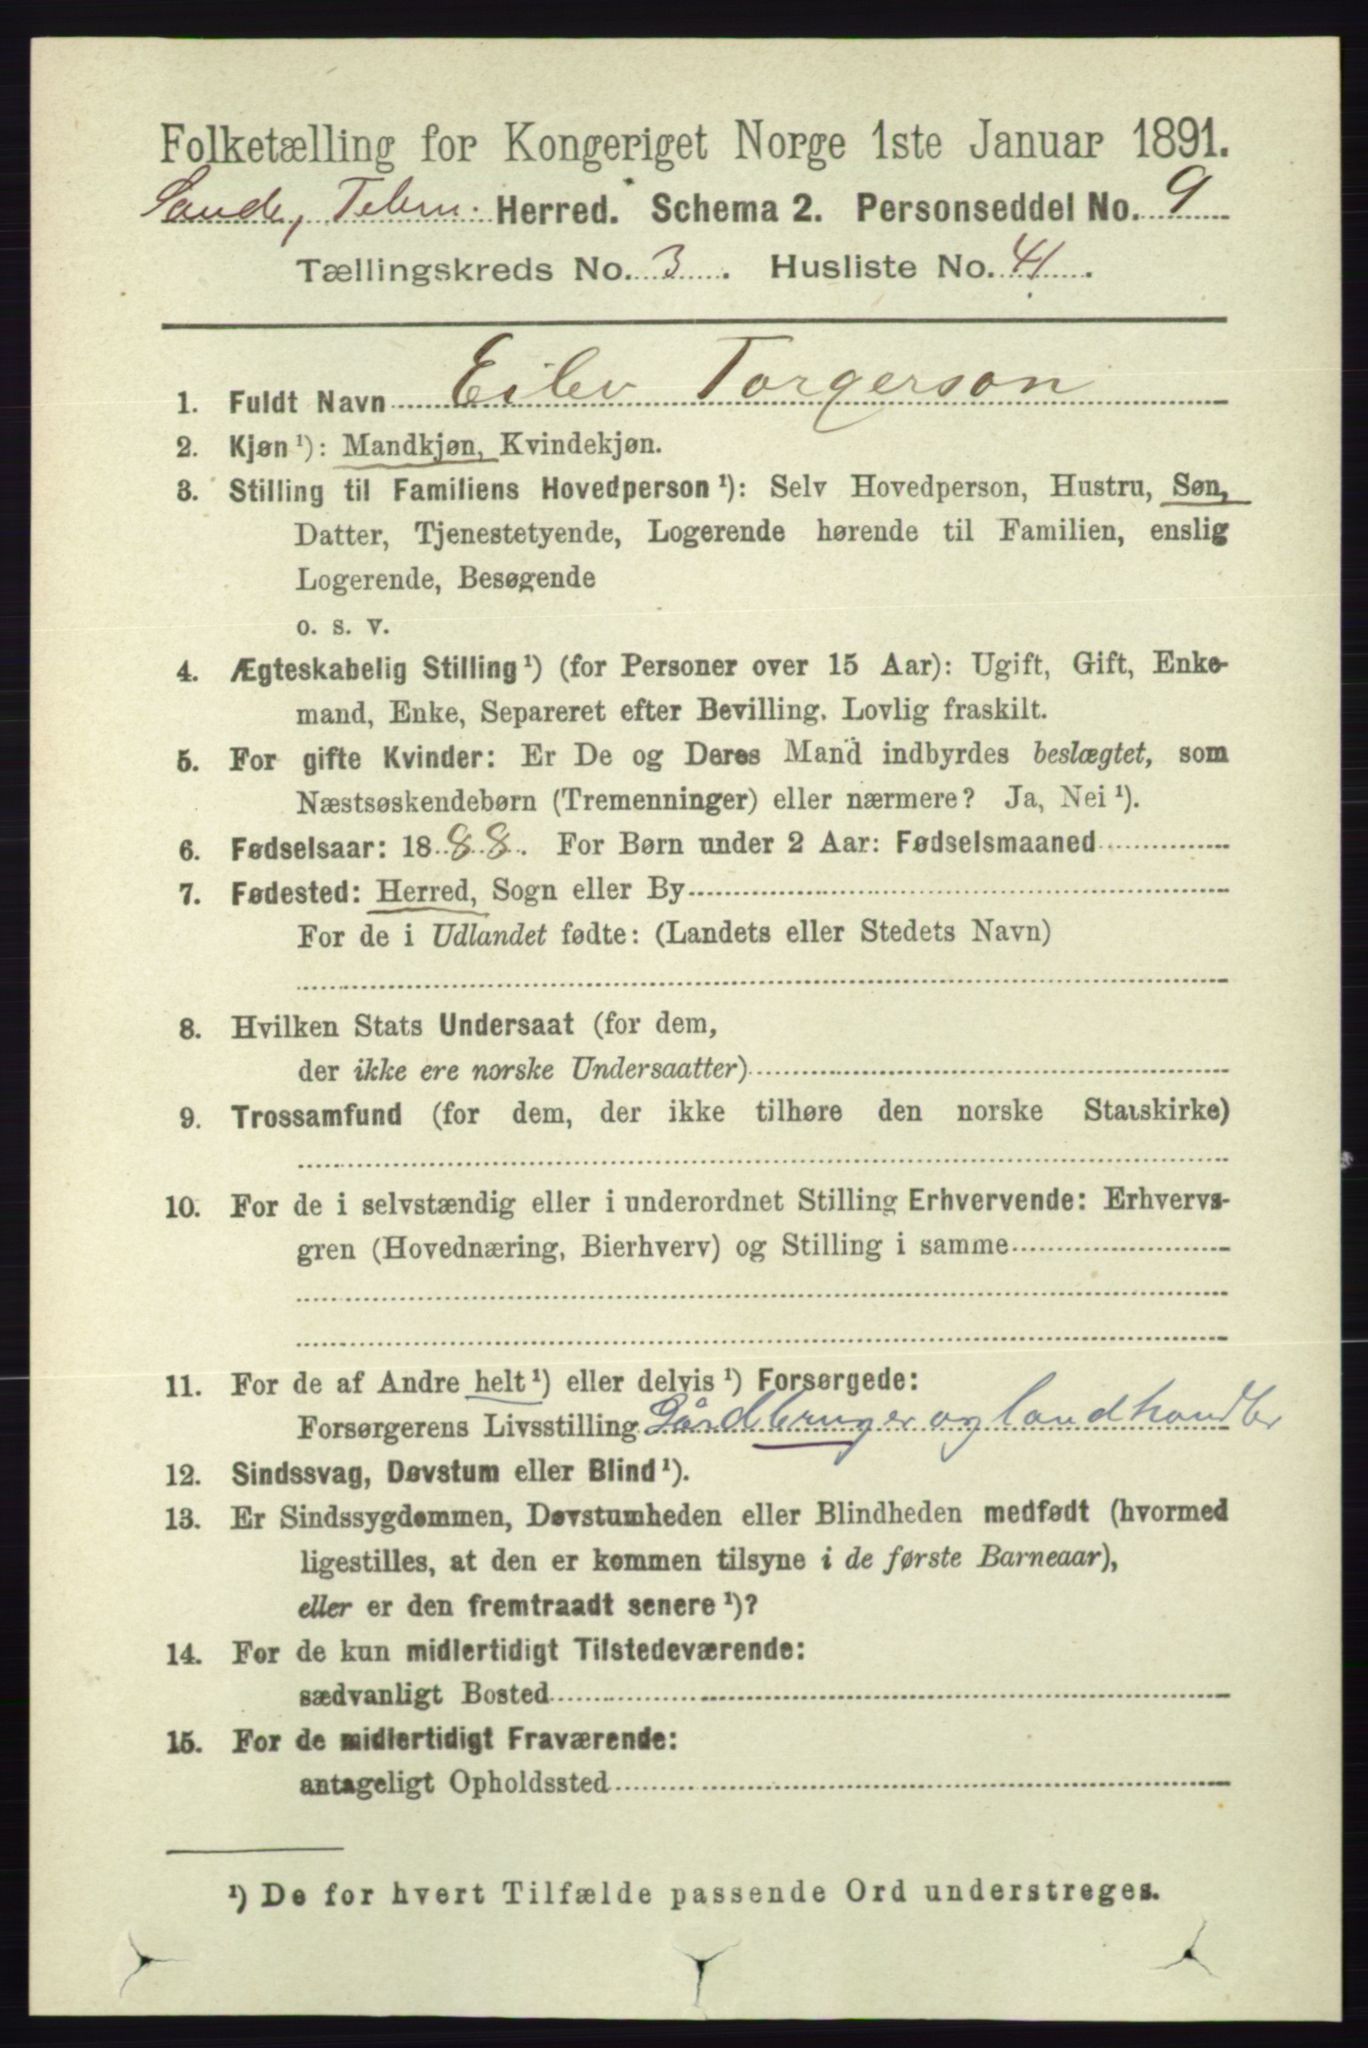 Folketælling for Kongeriget Norge 1ste Januar 1891.
Saude, Telem. Herred. Schema 2. Personseddel No. 9
Tællingskreds No. 3. Husliste No. 41.
1. Fuldt Navn Eilev Torgerson
2. Kjøn ¹): Mandkjøn, Kvindekjøn.
3. Stilling til Familiens Hovedperson ¹): Selv Hovedperson, Hustru, Søn,
Datter, Tjenestetyende, Logerende hørende til Familien, enslig
Logerende, Besøgende
o. s. v.
4. Ægteskabelig Stilling ¹) (for Personer over 15 Aar): Ugift, Gift, Enke-
mand, Enke, Separeret efter Bevilling. Lovlig fraskilt.
5. For gifte Kvinder: Er De og Deres Mand indbyrdes beslægtet, som
Næstsøskendebørn (Tremenninger) eller nærmere? Ja, Nei ¹).
6. Fødselsaar: 1888. For Børn under 2 Aar: Fødselsmaaned
7. Fødested: Herred, Sogn eller By
For de i Udlandet fødte: (Landets eller Stedets Navn)
8. Hvilken Stats Undersaat (for dem,
der ikke ere norske Undersaatter)
9. Trossamfund (for dem, der ikke tilhøre den norske Statskirke)
10. For de i selvstændig eller i underordnet Stilling Erhvervende: Erhvervs-
gren (Hovednæring, Bierhverv) og Stilling i samme
11. For de af Andre helt ¹) eller delvis ¹) Forsørgede:
Forsørgerens Livsstilling Gårdbruger og landhandler
12. Sindssvag, Døvstum eller Blind ¹).
13. Er Sindssygdommen, Døvstumheden eller Blindheden medfødt (hvormed
ligestilles, at den er kommen tilsyne i de første Barneaar),
eller er den fremtraadt senere ¹)?
14. For de kun midlertidigt Tilstedeværende:
sædvanligt Bosted
15. For de midlertidigt Fraværende:
antageligt Opholdssted
¹) De for hvert Tilfælde passende Ord understreges.